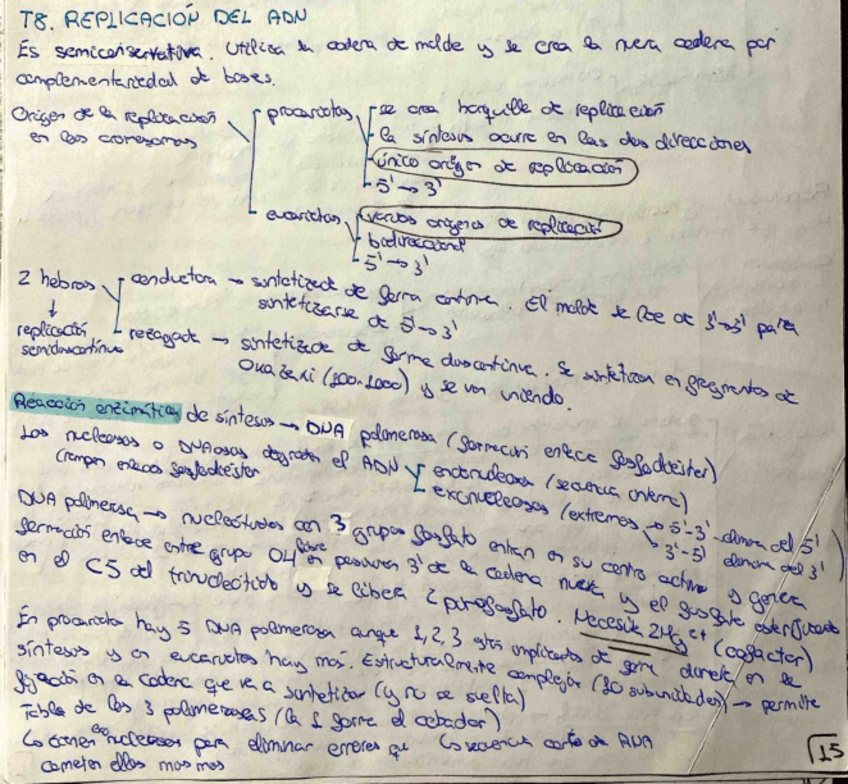 T8. REPLICACIÓN DEL ADN
Es semiconservativa. Utiliza la cadena de molde y se crea la nueva cadena por
complementariedad de bases.
Origen de la replicación en los cromosomas
procariotas
se crea horquilla de replicación
la síntesis ocurre en las dos direcciones
único origen de replicación
5' → 3'
eucariotas
varios orígenes de replicación
bidireccional
5' → 3'
2 hebras
↓
replicación
semidiscontinua
conductora → sintetizada de forma continua. El molde se lee de 3'→5' para
sintetizarse de 5'→3'
rezagada → sintetizada de forma discontinua. Se sintetizan en fragmentos de
Okazaki (1000-2000) y se van uniendo.
Reacción enzimática de síntesis → DNA polimerasa (formación enlace fosfodiéster)
Las nucleasas o DNAasas degradan el ADN
(rompen enlaces fosfodiéster
endonucleasa (secuencia interna)
exonucleasas (extremos → 5'-3' elimina del 5'
3'-5' elimina del 3' )
DNA polimerasa → nucleótidos con 3 grupos fosfato entran en su centro activo y genera
formación enlace entre grupo OH libre en posición 3' de la cadena nueva y el fosfato esterificado
en el C5 del trinucleótido y se libera pirofosfato. Necesita 2Mg 2+ (cofactor)
En procariota hay 5 DNA polimerasa aunque 1, 2, 3 están implicadas de forma directa en la
síntesis y en eucariotas hay más. Estructuralmente compleja (10 subunidades) → permite
fijación en la cadena que va a sintetizar (y no se suelta)
Tabla de las 3 polimerasas (la 1 forma el cebador)
↳ tienen exonucleasas para eliminar errores que
↳ secuencia corta de RNA
cometen ellas mismas
15